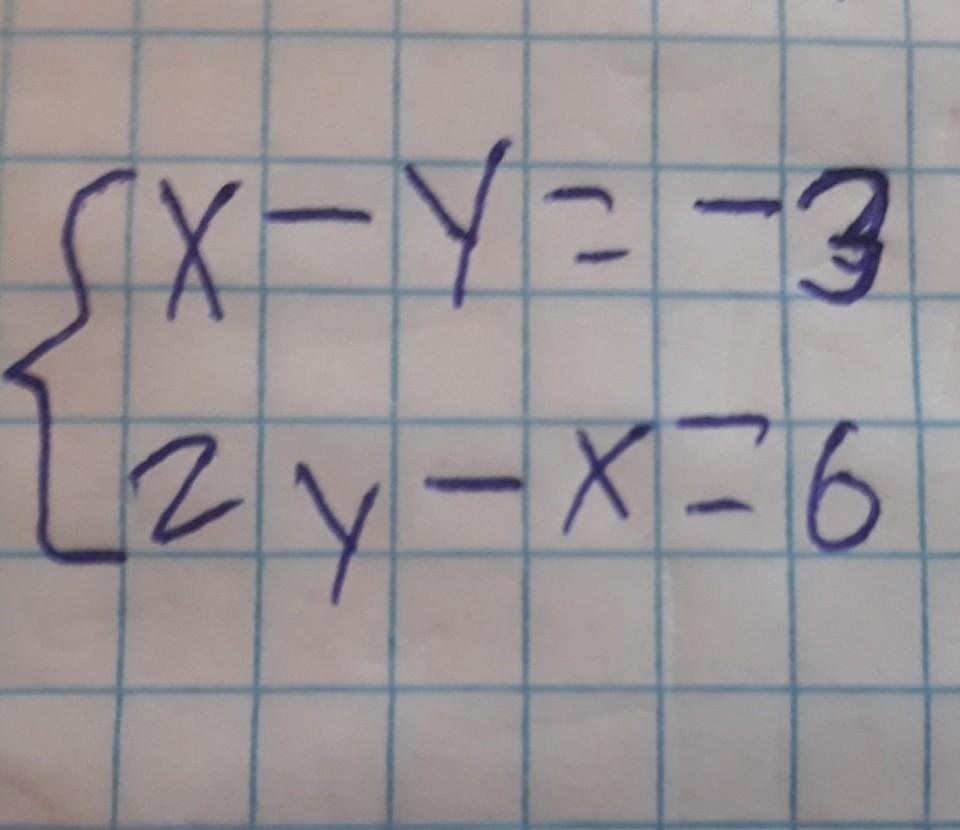 x - y = -3
2y - x = 6